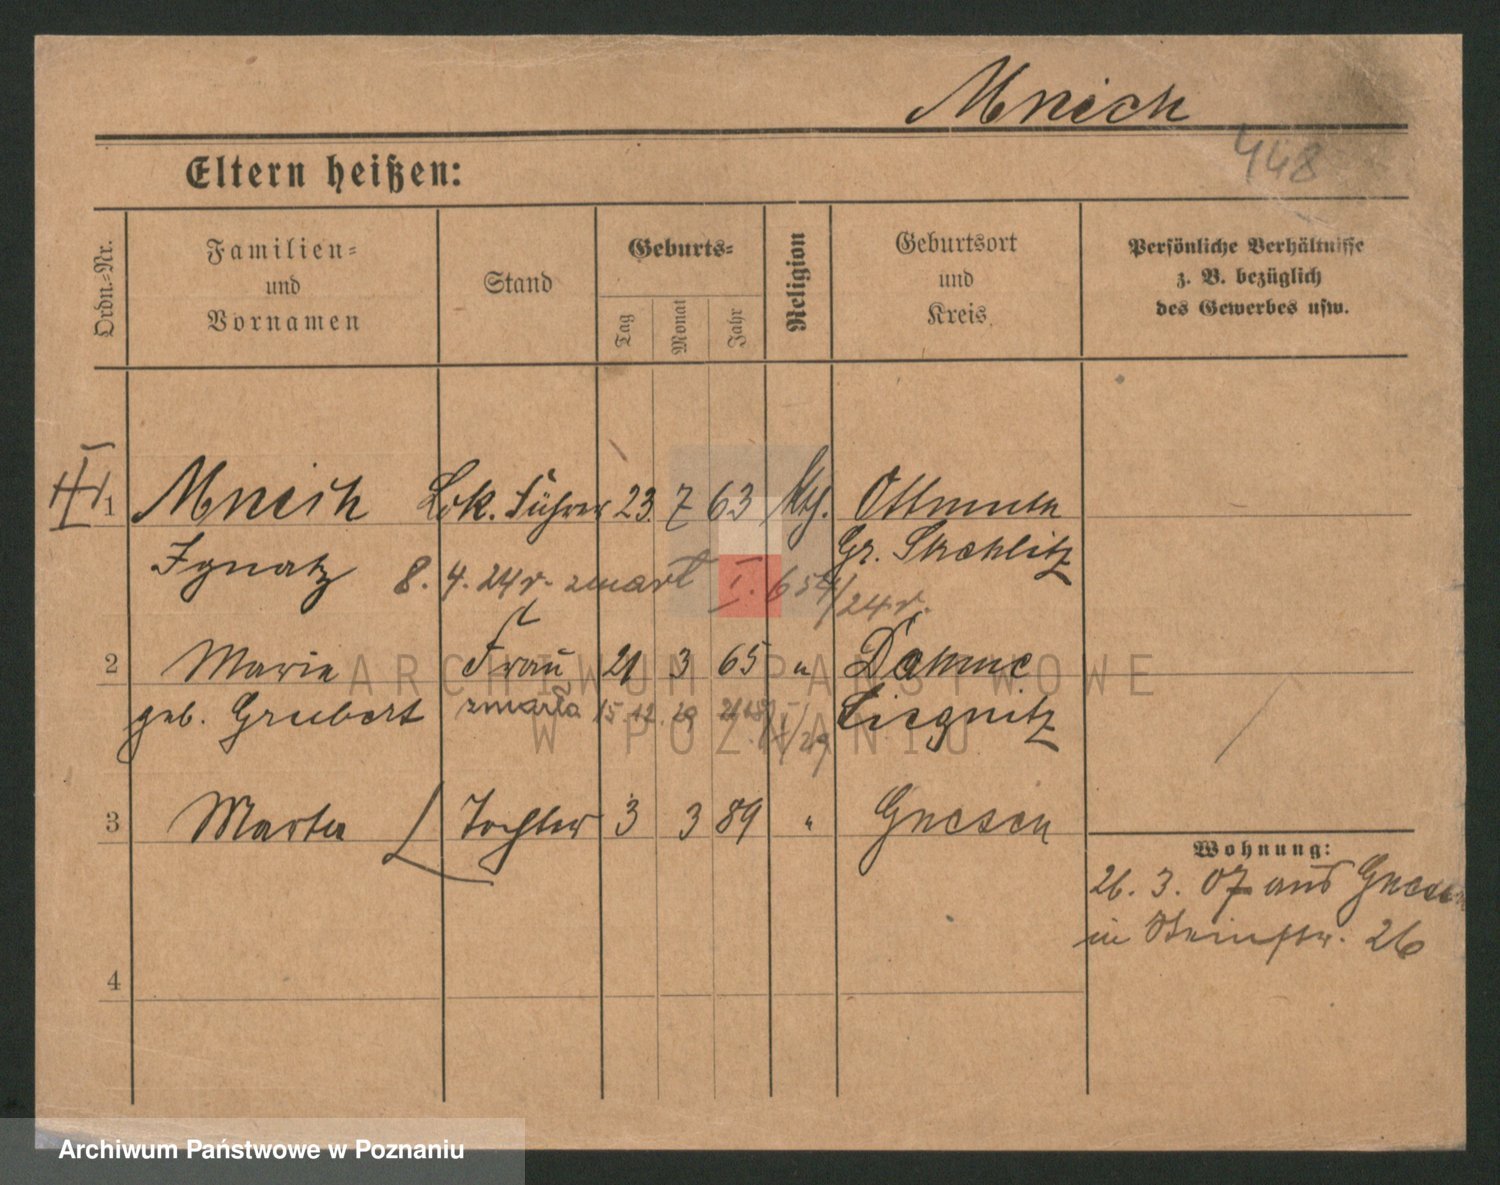 Mnich
448
Eltern heißen:
Ordn.-Nr.
Familien-
und
Vornamen
Stand
Geburts-
Tag
Monat
Jahr
Religion
Geburtsort
und
Kreis
Persönliche Verhältnisse
z. B. bezüglich
des Gewerbes usw.
1 Mnich Lok. Führer 23. 7 63 kth. Ottmuth
Ignatz Gr. Strehlitz
8. 4. 24 r. zmarł I. 654/24 r.
2 Marie Frau 21 3 65 " Dahme
geb. Grubert zmarła 15 12. 29 Liegnitz
3 Marta Tochter 3 3 89 " Gnesen
Wohnung:
26. 3. 07 aus Gnesen
in 26
4
ARCHIWUM PAŃSTWOWE
W POZNANIU
Archiwum Państwowe w Poznaniu